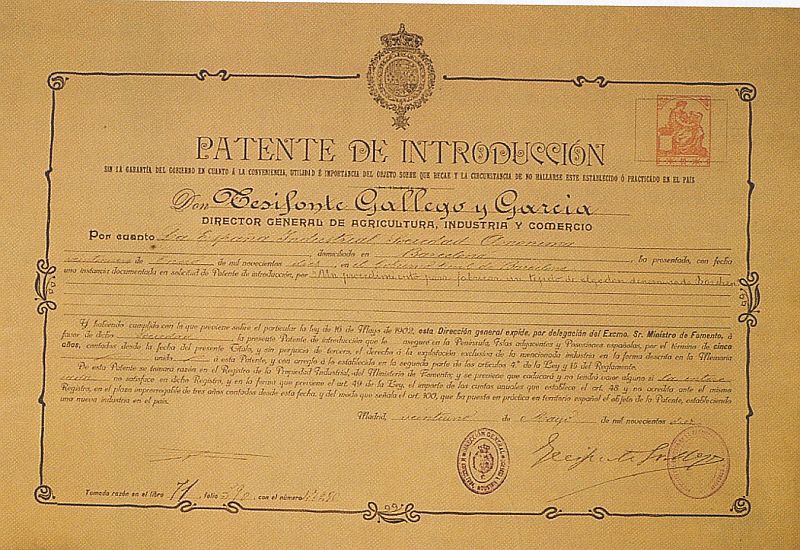 PATENTE DE INTRODUCCIÓN
SIN LA GARANTÍA DEL GOBIERNO EN CUANTO Á LA CONVENIENCIA, UTILIDAD É IMPORTANCIA DEL OBJETO SOBRE QUE RECAE Y LA CIRCUNSTANCIA DE NO HALLARSE ESTE ESTABLECIDO Ó PRACTICADO EN EL PAIS
Don Tesifonte Gallego y García
DIRECTOR GENERAL DE AGRICULTURA, INDUSTRIA Y COMERCIO
Por cuanto La España Industrial Sociedad Anónima
domiciliado en Barcelona, ha presentado, con fecha
de de mil novecientos diez en el Gobierno civil de Barcelona
una instancia documentada en solicitud de Patente de introducción, por "Un procedimiento para fabricar un tejido de algodon denominado
Y habiendo cumplido con lo que previene sobre el particular la ley de 16 de Mayo de 1902, esta Dirección general expide, por delegación del Excmo. Sr. Ministro de Fomento, á
favor de dicho Sociedad la presente Patente de introducción que le asegure en la Península, Islas adyacentes y Posesiones españolas, por el término de cinco
años, contados desde la fecha del presente Título, y sin perjuicio de tercero, el derecho á la explotación exclusiva de la mencionada industria en la forma descrita en la Memoria
unida á esta Patente, y con arreglo á lo establecido en la segunda parte de los artículos 4º de la Ley y 15 del Reglamento.
De esta Patente se tomará razón en el Registro de la Propiedad Industrial, del Ministerio de Fomento; y se previene que caducará y no tendrá valor alguno si la
no satisface en dicho Registro, y en la forma que previene el art. 49 de la Ley, el importe de las cuotas anuales que establece el art. 48 y no acredita ante el mismo
Registro, en el plazo improrrogable de tres años contados desde esta fecha, y del modo que señala el art. 100, que ha puesto en práctica en territorio español el objeto de la Patente, estableciendo
una nueva industria en el país.
Madrid, veintiuno de Mayo de mil novecientos diez
Tomada razón en el libro 71, folio 390 con el número